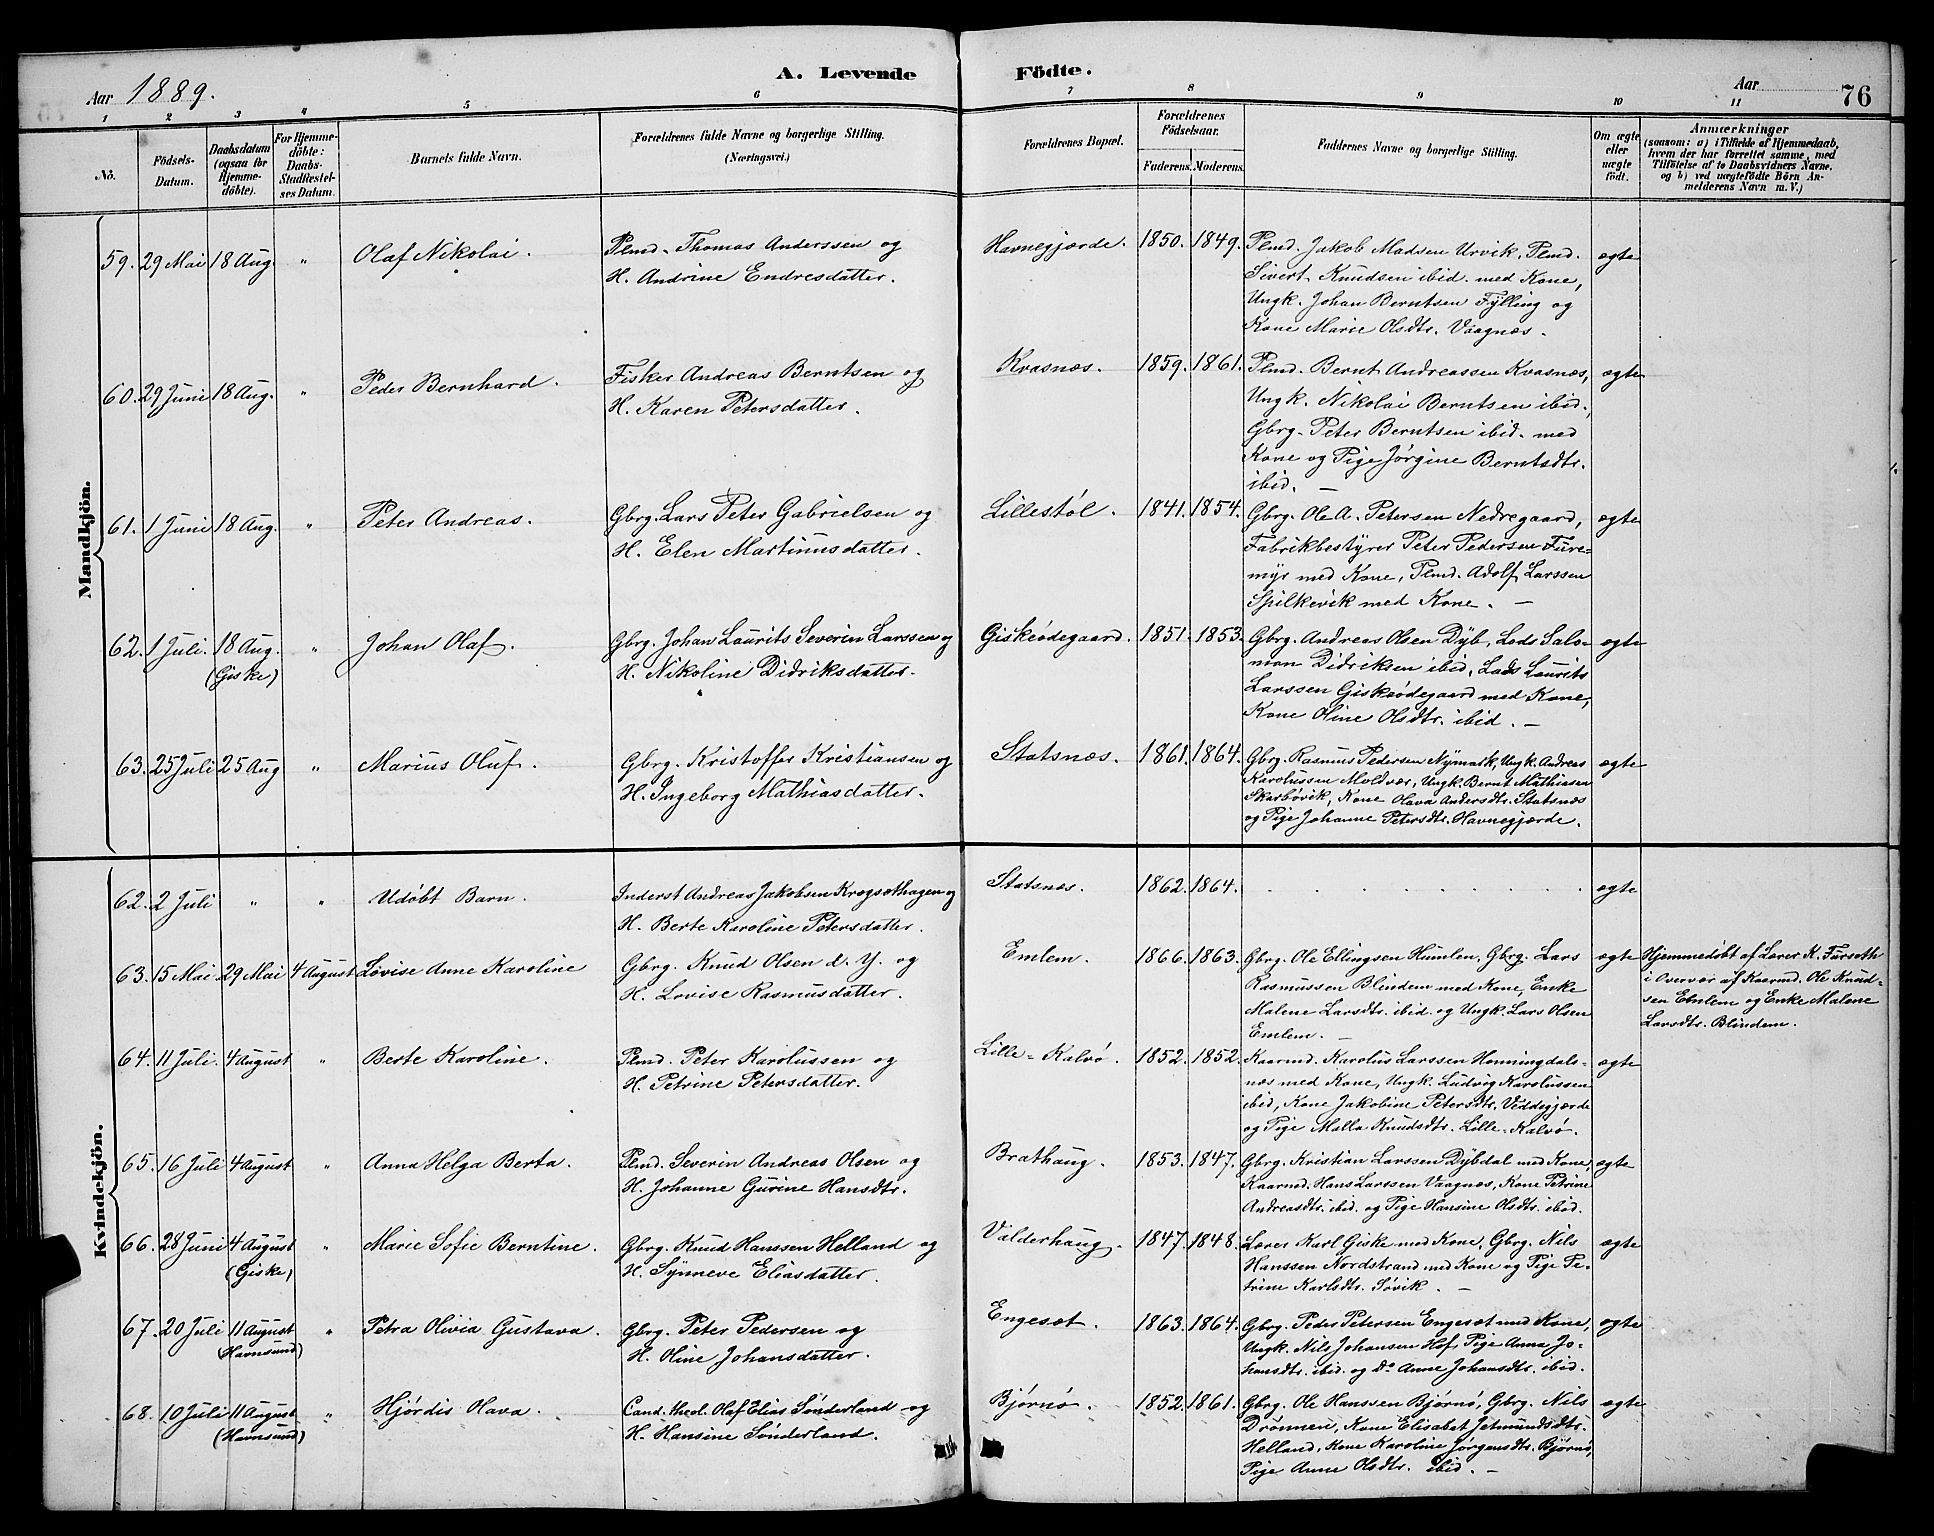 Aar 1889.
A. Levende Födte.
Aar
76
1 2 3 4 5 6 7 8 9 10 11
No.
Födsels-
Datum.
Daabsdatum
(ogsaa for
Hjemme-
döbte).
For Hjemme-
döbte:
Daabs-
Stadfæstel-
ses Datum.
Barnets fulde Navn.
Forældrenes fulde Navne og borgerlige Stilling.
(Næringsvei.)
Forældrenes Bopæl.
Forældrenes
Födselsaar.
Faderens. Moderens.
Faddernes Navne og borgerlige Stilling.
Om ægte
eller
uægte
födt.
Anmærkninger
(saasom: a) i Tilfælde af Hjemmedaab,
hvem der har forrettet samme, med
Tilföielse af to Daabsvidners Navne.
og b) ved uægtefödte Börn An-
melderens Navn m. V.)
Mandkjön.
59. 29 Mai 18 Aug. " Olaf Nikolai. Plmd. Thomas Anderssen og Havnegjærde. 1850. 1849. Plmd. Jakob Madsen Urvik, Plmd. ægte
H. Andrine Endresdatter. Sivert Knudsen ibid. med Kone,
Ungk. Johan Berntsen Fylling og
Kone Marie Olsdtr. Vaagnæs.
60. 29 Juni 18 Aug. " Peder Bernhard. Fisker Andreas Berntsen og Kvasnæs. 1859. 1861. Plmd. Bernt Andreassen Kvasnæs, ægte
H. Karen Petersdatter. Ungk. Nikolai Berntsen ibid.,
Gbrg. Peter Berntsen ibid. med
Kone og Pige Jørgine Berntsdtr.
ibid. —
61. 1 Juni 18 Aug. " Peter Andreas. Gbrg. Lars Peter Gabrielsen og Lillestøl. 1841. 1854. Gbrg. Ole A. Petersen Nedregaard, ægte
H. Elen Martinusdatter. Fabrikbestyrer Peter Pedersen Fure-
myr med Kone, Plmd. Adolf Larssen
Spilkevik med Kone. —
62. 1 Juli. 18 Aug. " Johan Olaf. Gbrg. Johan Laurits Severin Larssen og Giskeødegaard. 1851. 1853. Gbrg. Andreas Olsen Dyb, Lods Salo- ægte
(Giske) H. Nikoline Didriksdatter. mon Didriksen ibid., Lods Laurits
Larssen Giskeødegaard med Kone,
Kone Oline Olsdtr. ibid. —
63. 25 Juli 25 Aug " Marius Oluf. Gbrg. Kristoffer Kristiansen og Statsnæs. 1861. 1864. Gbrg. Rasmus Pedersen Nymark, Ungk. Andreas ægte
H. Ingeborg Mathiasdatter. Karolussen Moldvær, Ungk. Bernt Mathiasen
Skarbøvik, Kone Olava Andersdtr. Statsnæs
og Pige Johanne Petersdtr. Havnegjærde.
Kvindekjön.
62. 2 Juli " " Udøbt Barn. Inderst Andreas Jakobsen Krogsæthagen og Statsnæs. 1862. 1864. . . . . . . . . ægte
H. Berte Karoline Petersdatter.
63. 15 Mai 29 Mai 4 August Lovise Anne Karoline Gbrg. Knud Olsen d. Y. og Emlem. 1866. 1863. Gbrg. Ole Ellingsen Humlen, Gbrg. Lars ægte Hjemmedøbt af Lærer K. Furseth
H. Lovise Rasmusdatter. Rasmussen Blindem med Kone, Enke i Overvær af Kaarmd. Ole Knud-
Malene Larsdtr. ibid. og Ungk. Lars Olsen sen Emlem og Enke Malene
Emlem. — Larsdtr. Blindem.
64. 11 Juli. 4 August " Berte Karoline. Plmd. Peter Karolussen og Lille-Kalvø. 1852. 1852. Kaarmd. Karolus Larssen Honningdals- ægte
H. Petrine Petersdatter. næs med Kone, Ungk. Ludvig Karolussen
ibid, Kone Jakobine Petersdtr. Viddegjærde
og Pige Malla Knudsdtr. Lille-Kalvø.
65. 16 Juli 4 August " Anna Helga Berta. Plmd. Severin Andreas Olsen og Brathaug. 1853. 1847. Gbrg. Kristian Larssen Dybdal med Kone, ægte
H. Johanne Gurine Hansdtr. Kaarmd. Hans Larssen Vaagnæs, Kone Petrine
Andreasdtr. ibid. og Pige Hansine Olsdtr. ibid.
66. 28 Juni 4 August " Marie Sofie Berntine. Gbrg. Knud Hanssen Helland og Valderhaug. 1847. 1848. Lærer Karl Giske med Kone, Gbrg. Nils ægte
(Giske) H. Synneve Eliasdatter. Hanssen Nordstrand med Kone og Pige Pe-
trine Karlsdtr. Søvik. —
67. 20 Juli 11 August " Petra Olivia Gustava. Gbrg. Peter Pedersen og Engesæt. 1863. 1864. Gbrg. Peder Petersen Engesæt med Kone, ægte
(Havnsund) H. Oline Johansdatter. Ungk. Nils Johansen Hof, Pige Anna Jo-
hansdtr. ibid. og Do Anne Johansdtr. ibid.
68. 10 Juli 11 August " Hjørdis Olava. Cand. theol. Olaf Elias Sønderland og Bjørnø. 1852. 1861. Gbrg. Ole Hanssen Bjørnø, Gbrg. Nils ægte
(Havnsund) H. Hansine Sønderland. Drønnen, Kone Elisabet Jetmundsdtr.
Helland, Kone Karoline Jørgensdtr. Bjørnø,
Pige Anne Olsdtr. ibid. —